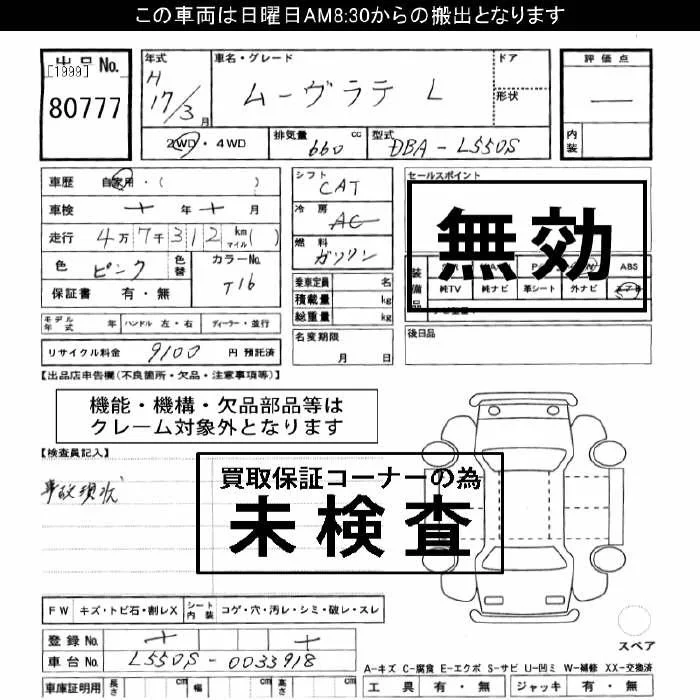 この車両は日曜日AM8:30からの搬出となります
出品 No.
[1999]
80777
年式
H
17/3月
車名・グレード
ムーヴラテ L
ドア
形状
評価点
—
内装
2WD・4WD
排気量
660 cc
型式
DBA-L550S
車歴 自家用・( )
車検 年 月
走行 4万7千312 km マイル( )
色 ピンク
色替
カラーNo.
T16
保証書 有・無
シフト
CAT
冷房
AC
燃料
ガソリン
乗車定員 名
積載量 kg
総重量 kg
セールスポイント
無効
装備品
ABS
純TV 純ナビ 革シート 外ナビ
モデル年式 年 ハンドル 左・右 ディーラー・並行
名変期限
月 日
後日品
リサイクル料金 9100 円 預託済
【出品店申告欄(不良箇所・欠品・注意事項等)】
機能・機構・欠品部品等は
クレーム対象外となります
【検査員記入】
事故現状
買取保証コーナーの為
未検査
FW キズ・トビ石・割レX シート内装 コゲ・穴・汚レ・シミ・破レ・スレ
登録No.
車台No. L550S-0033918
スペア
A-キズ C-腐食 E-エクボ S-サビ U-凹ミ W-補修 XX-交換済
車庫証明用 長さ cm 幅 cm 高さ cm
工具 有・無 ジャッキ 有・無